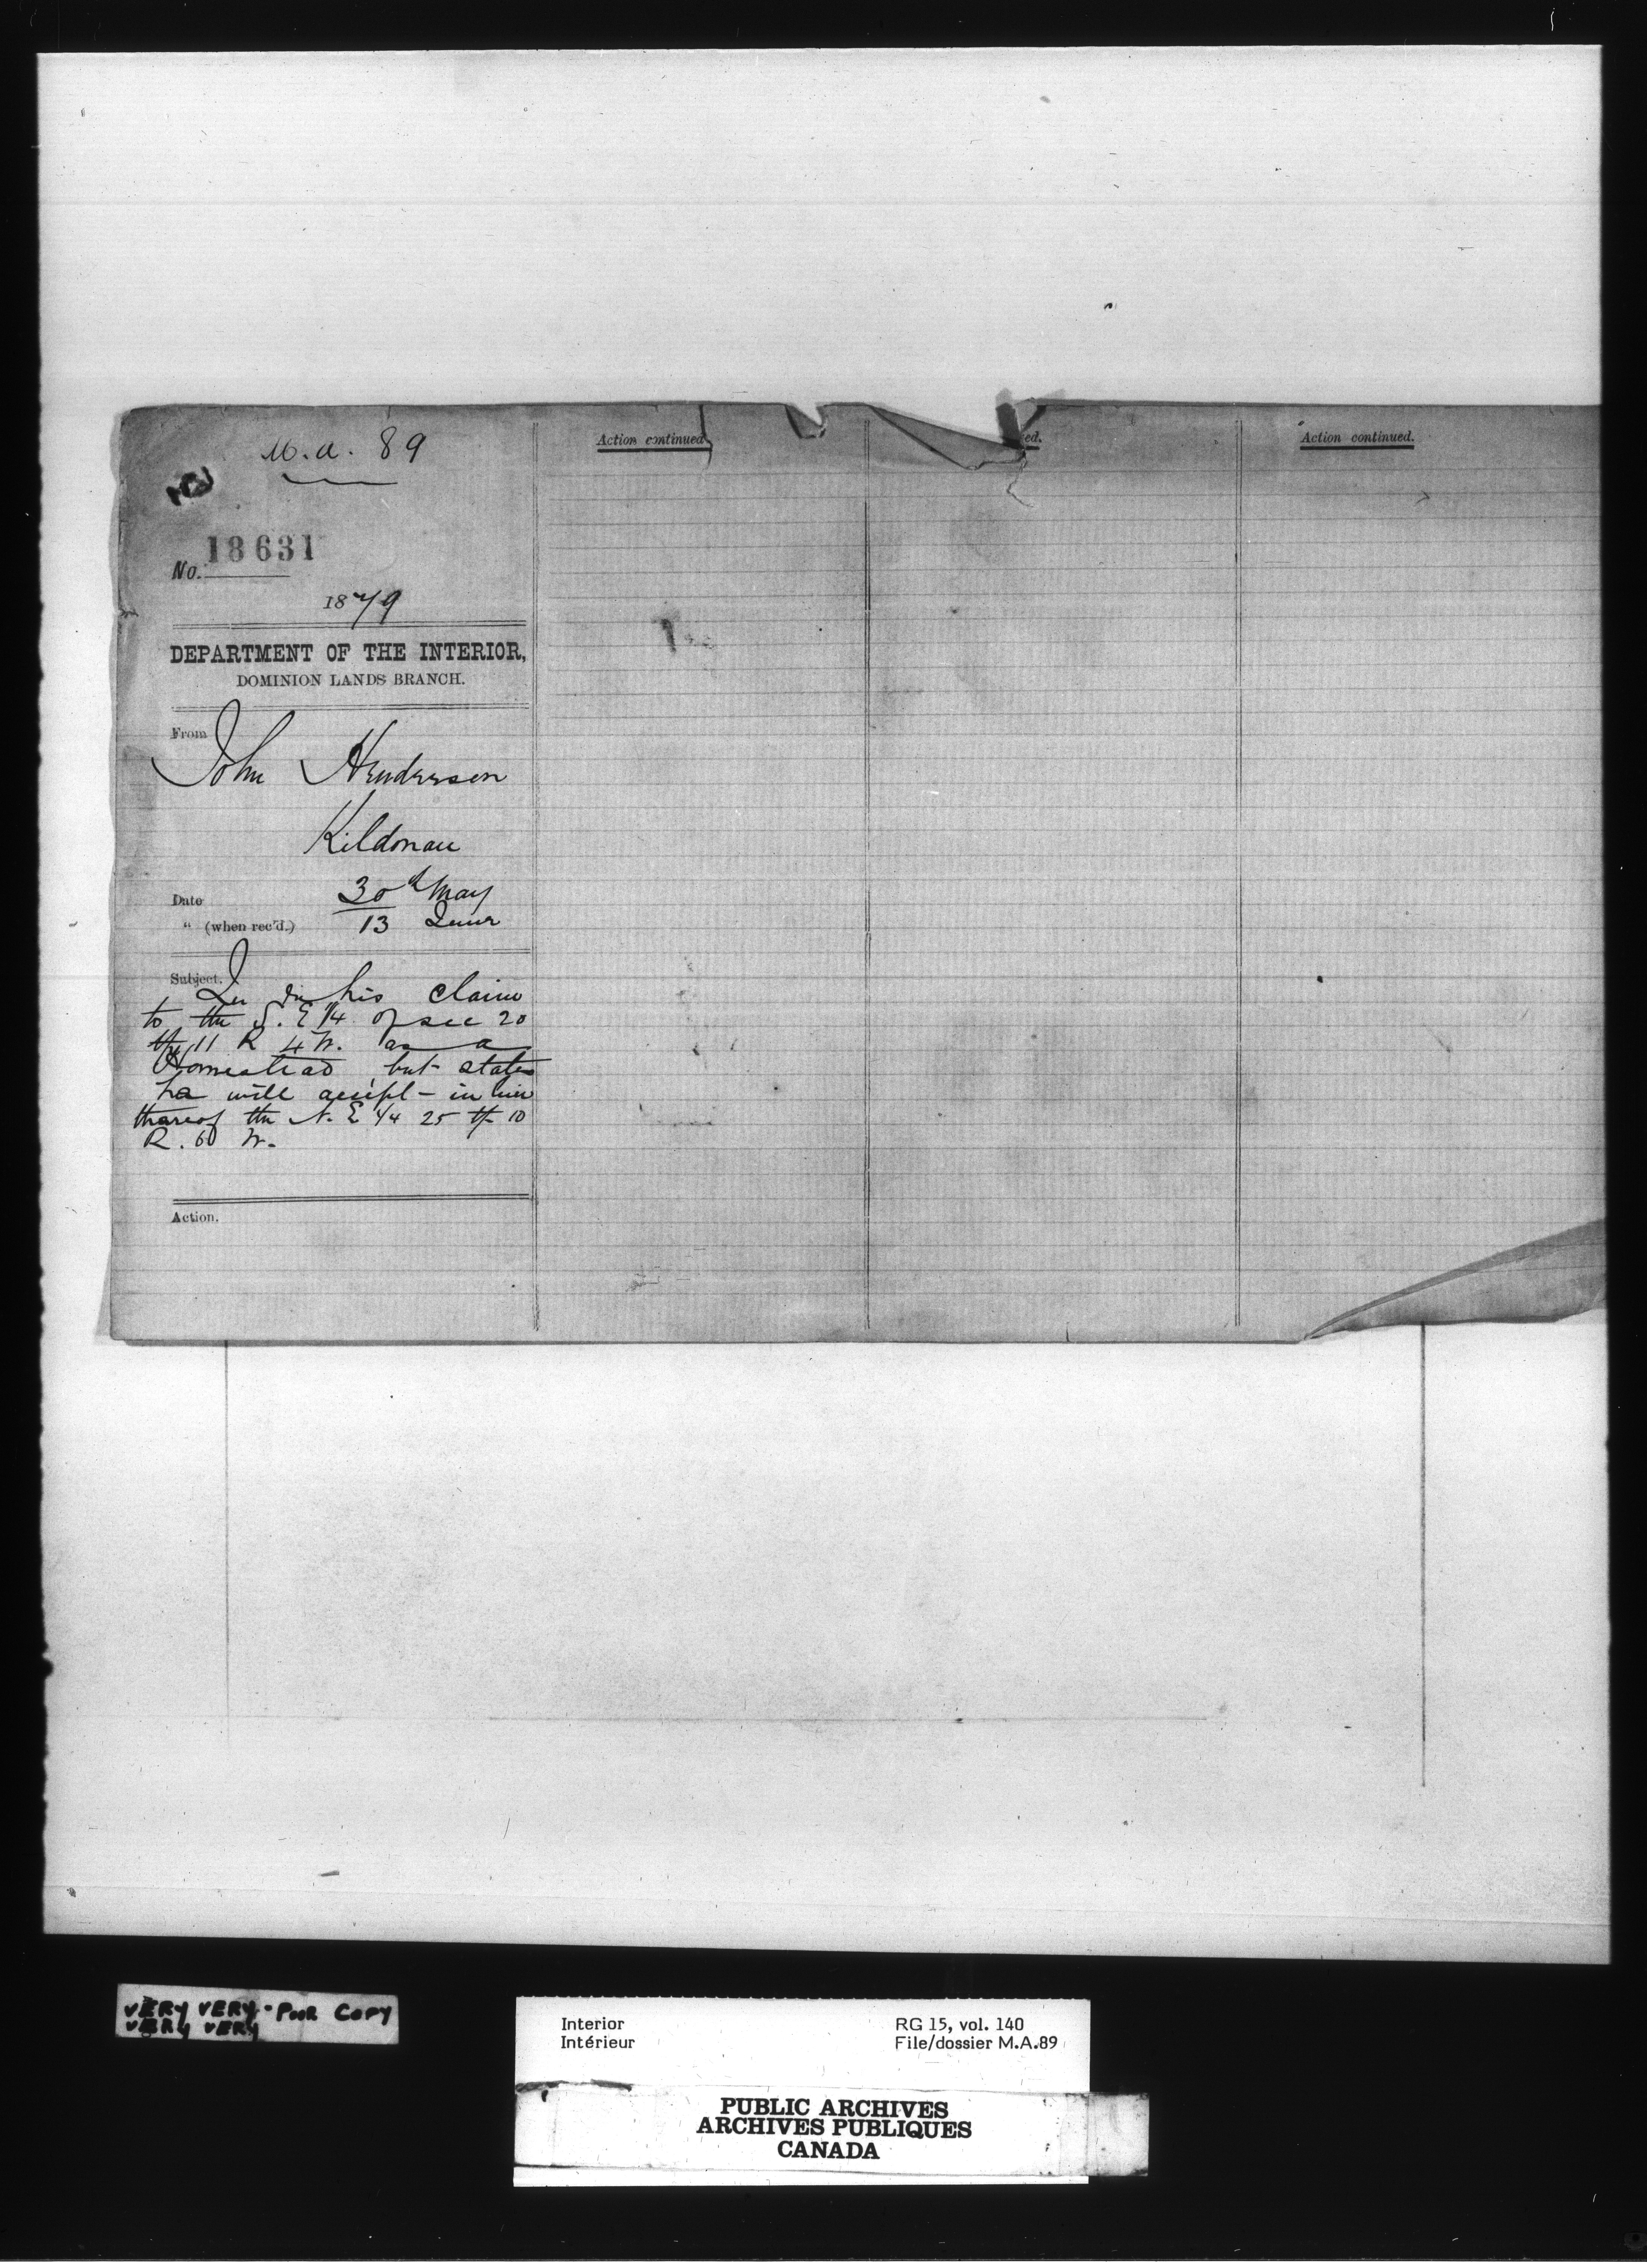 M.A. 89
No. 18631
1879
DEPARTMENT OF THE INTERIOR,
DOMINION LANDS BRANCH.
From
John Henderson
Kildonan
Date 30th May
" (when rec'd.) 13 June
Subject.
his claim
to the S. E 1/4 of sec 20
tp 11 R 4 W. as a
Homestead but states
he will accept - in lieu
thereof the N. E 1/4 25 tp 10
R. 6 W.
Action.
Action continued
ed.
Action continued.
VERY VERY - POOR COPY
VERY VERY
Interior RG 15, vol. 140
Intérieur File/dossier M.A.89
PUBLIC ARCHIVES
ARCHIVES PUBLIQUES
CANADA